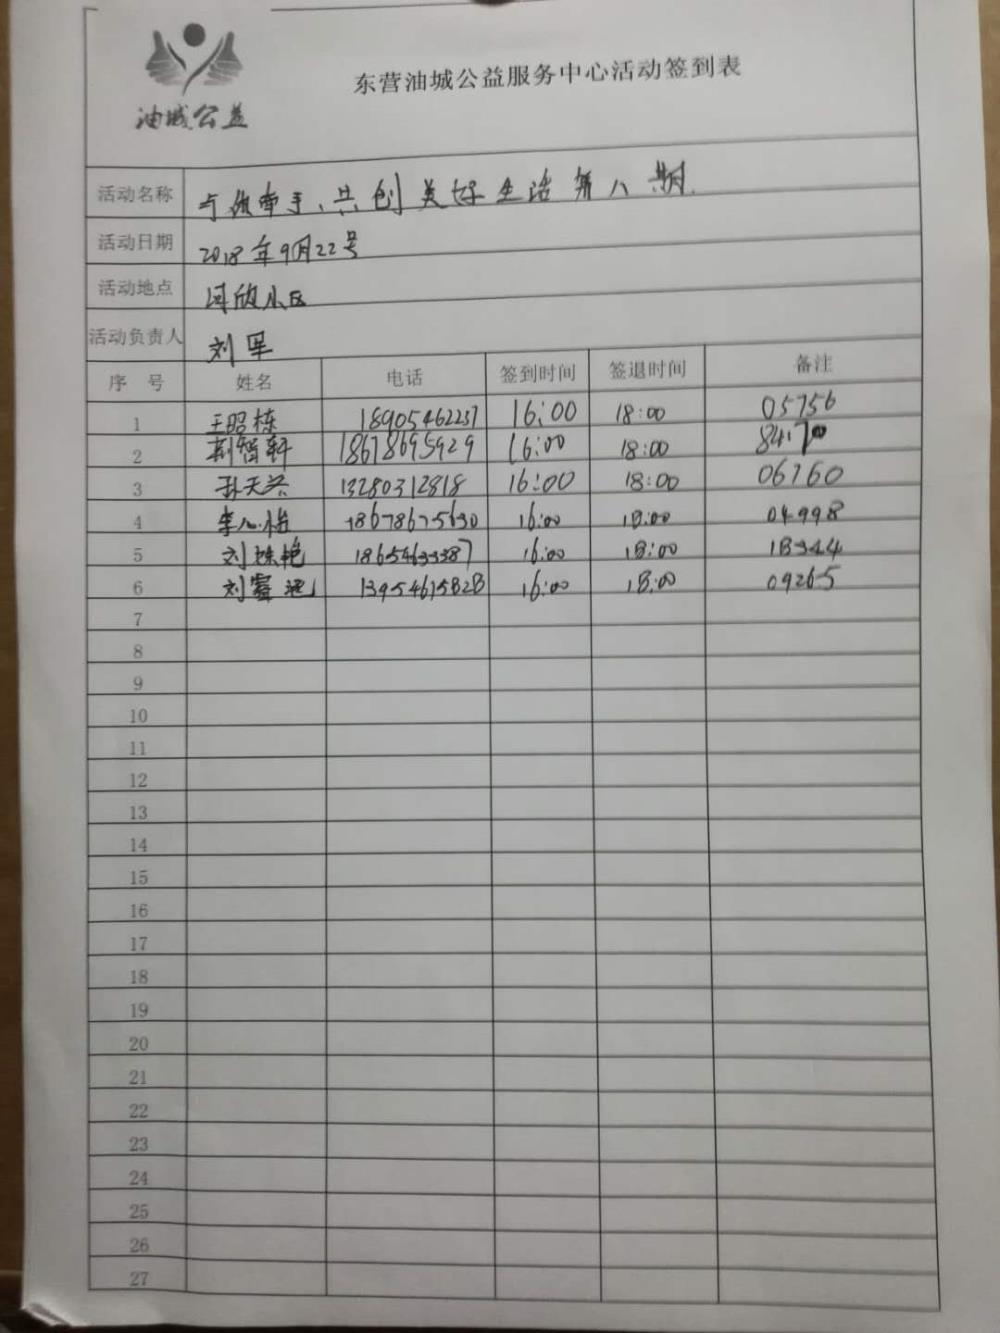 油城公益
东营油城公益服务中心活动签到表
活动名称 与你牵手、共创美好生活第八期
活动日期 2018年9月22号
活动地点 河欣小区
活动负责人 刘军
序 号 姓名 电话 签到时间 签退时间 备注
1 王昭栋 18905462237 16:00 18:00 05756
2 荆智轩 18678695929 16:00 18:00
3 孙天兴 13280312818 16:00 18:00 06760
4 李心怡 18678675630 16:00 18:00 04998
5 刘 艳 18654633387 16:00 18:00 18344
6 刘 13954615828 16:00 18:00 09265
7
8
9
10
11
12
13
14
15
16
17
18
19
20
21
22
23
24
25
26
27